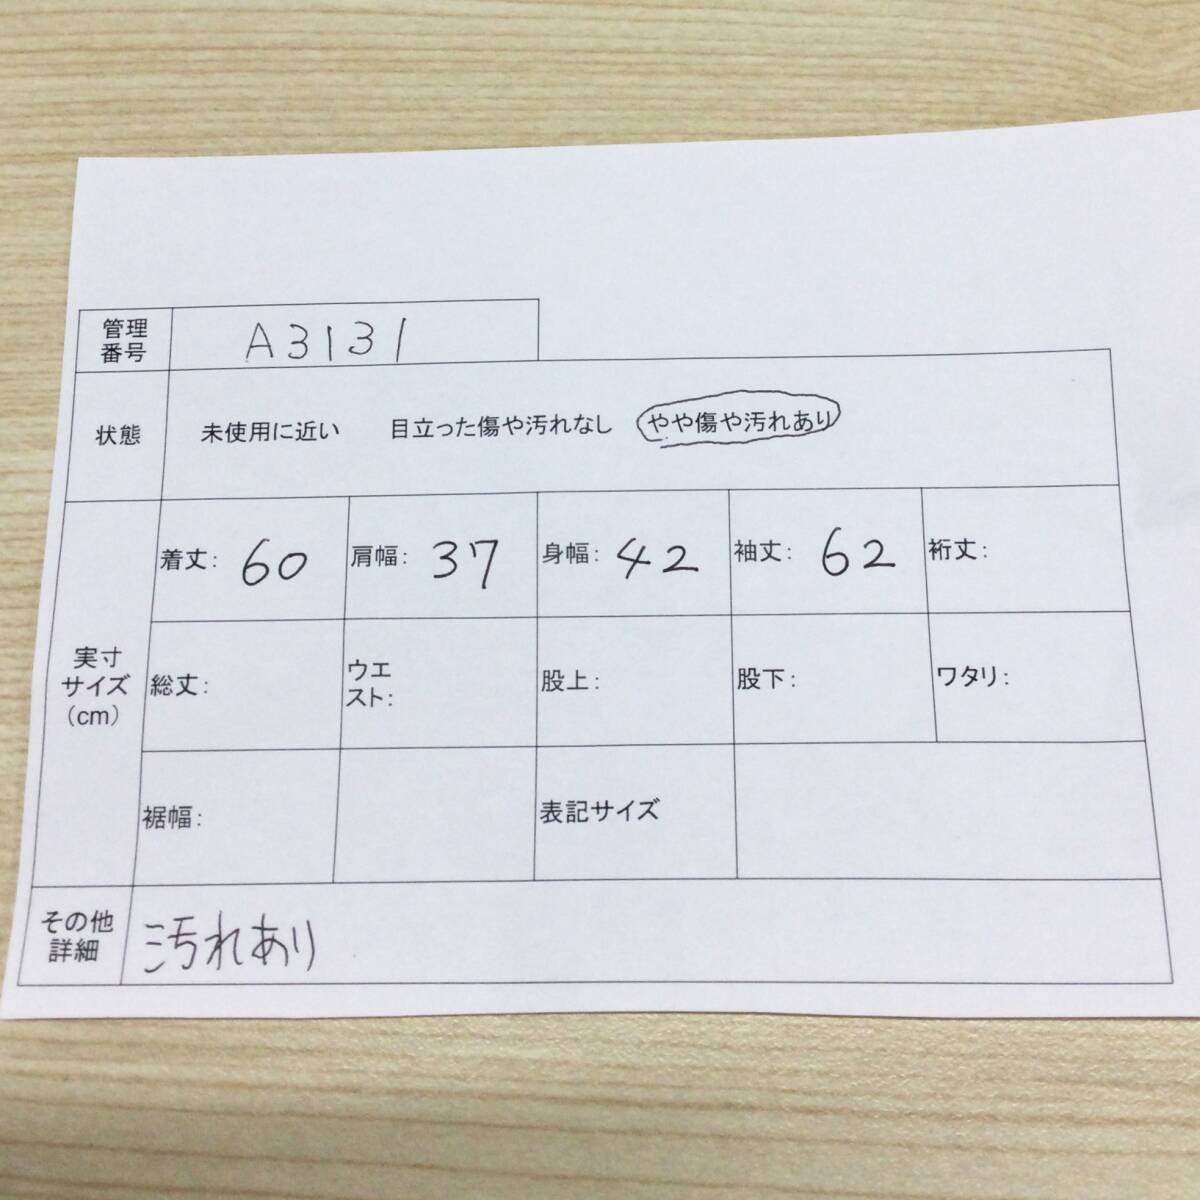 管理
番号
A3131
状態
未使用に近い 目立った傷や汚れなし やや傷や汚れあり
実寸
サイズ
(cm)
着丈: 60 肩幅: 37 身幅: 42 袖丈: 62 裄丈:
総丈: ウエ
スト: 股上: 股下: ワタリ:
裾幅: 表記サイズ
その他
詳細
汚れあり